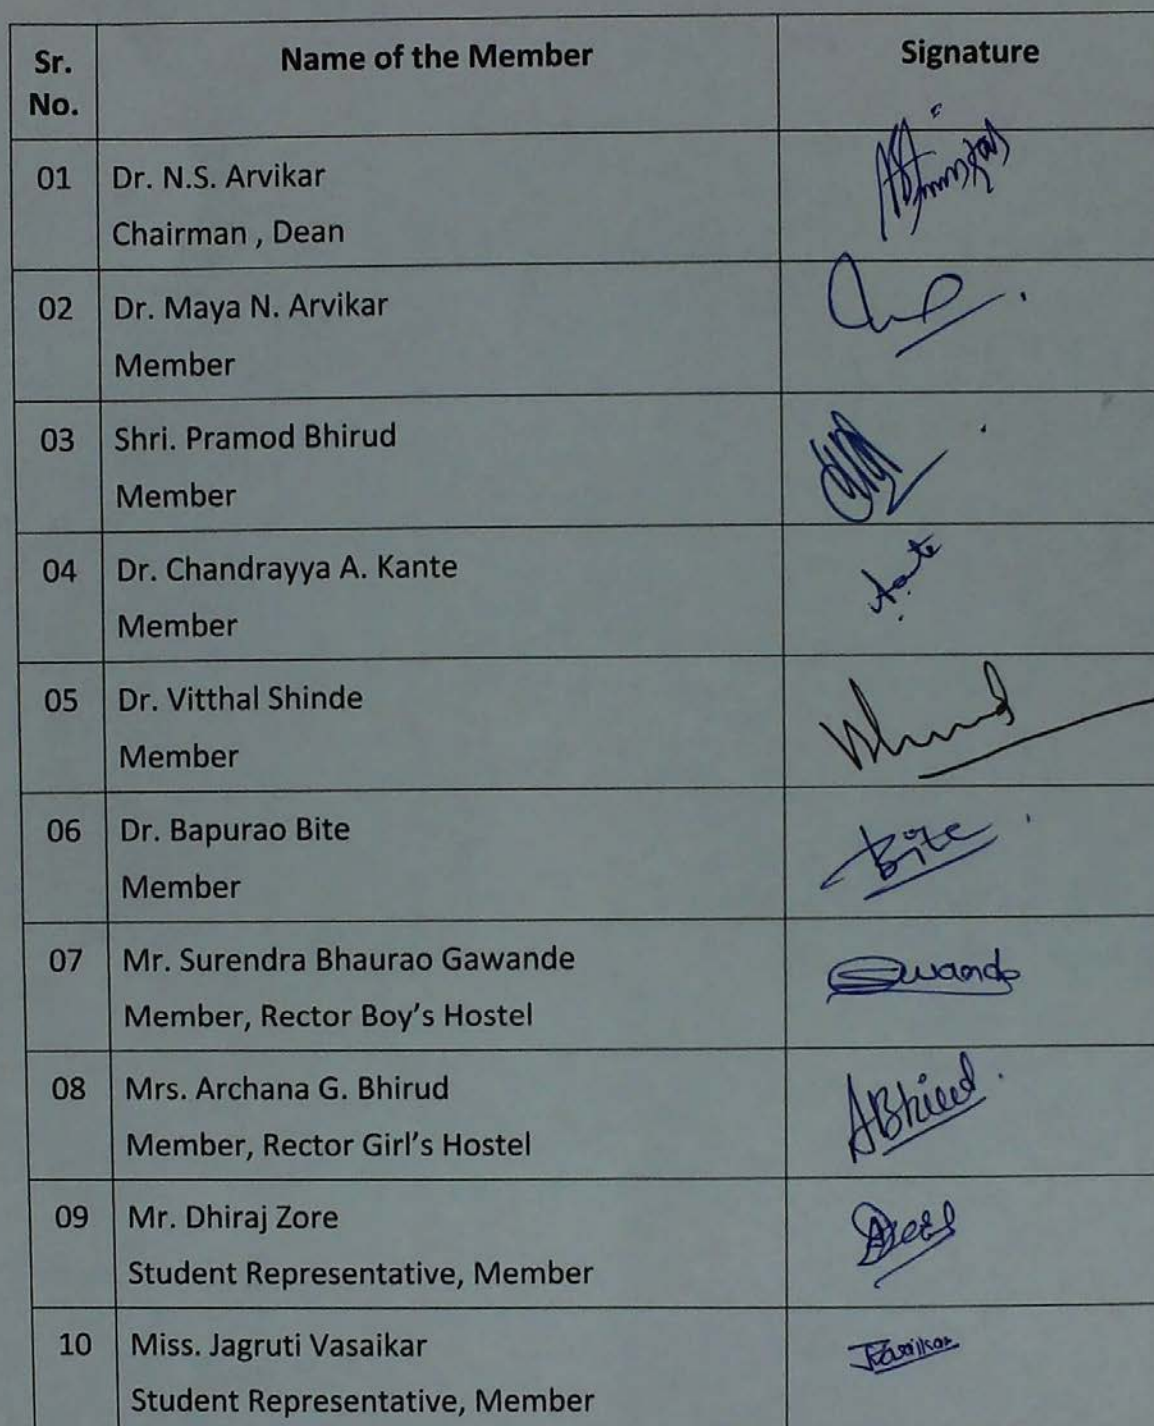 Sr. No. Name of the Member Signature
01 Dr. N.S. Arvikar
Chairman , Dean
02 Dr. Maya N. Arvikar
Member
03 Shri. Pramod Bhirud
Member
04 Dr. Chandrayya A. Kante
Member
05 Dr. Vitthal Shinde
Member
06 Dr. Bapurao Bite Bite
Member
07 Mr. Surendra Bhaurao Gawande
Member, Rector Boy's Hostel
08 Mrs. Archana G. Bhirud ABhirud
Member, Rector Girl's Hostel
09 Mr. Dhiraj Zore
Student Representative, Member
10 Miss. Jagruti Vasaikar
Student Representative, Member